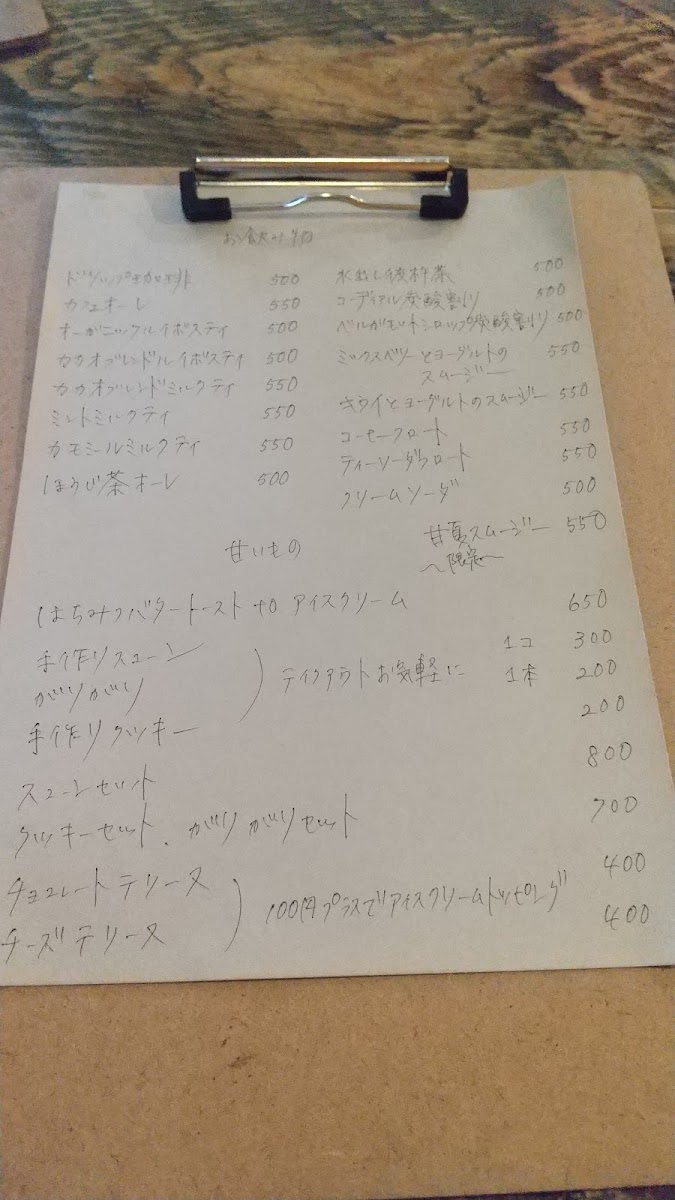 お飲み物
ドリップ珈琲 500
カフェオーレ 550
オーガニックルイボスティ 500
カカオブレンドルイボスティ 500
カカオブレンドミルクティ 550
ミントミルクティ 550
カモミールミルクティ 550
ほうじ茶オーレ 500
水出し後杵茶 500
コーディアル炭酸割り 500
ベルガモットシロップ炭酸割り 500
ミックスベリーとヨーグルトの
スムージー 550
キウイとヨーグルトのスムージー 550
コーヒーフロート 550
ティーソーダフロート 550
クリームソーダ 500
甘夏スムージー 550
〜限定〜
甘いもの
はちみつバタートースト to アイスクリーム 650
手作りスコーン 1コ 300
がりがり 1本 200
テイクアウトお気軽に
手作りクッキー 200
スコーンセット 800
クッキーセット、がりがりセット 700
チョコレートテリーヌ 400
100円プラスでアイスクリームトッピング
チーズテリーヌ 400